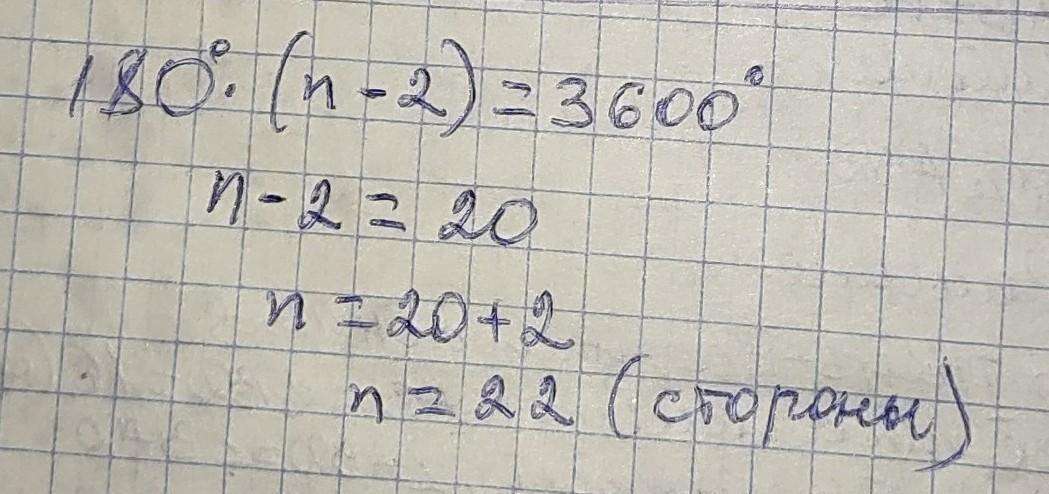 180°·(n-2)=3600°
n-2=20
n=20+2
n=22 (стороны)